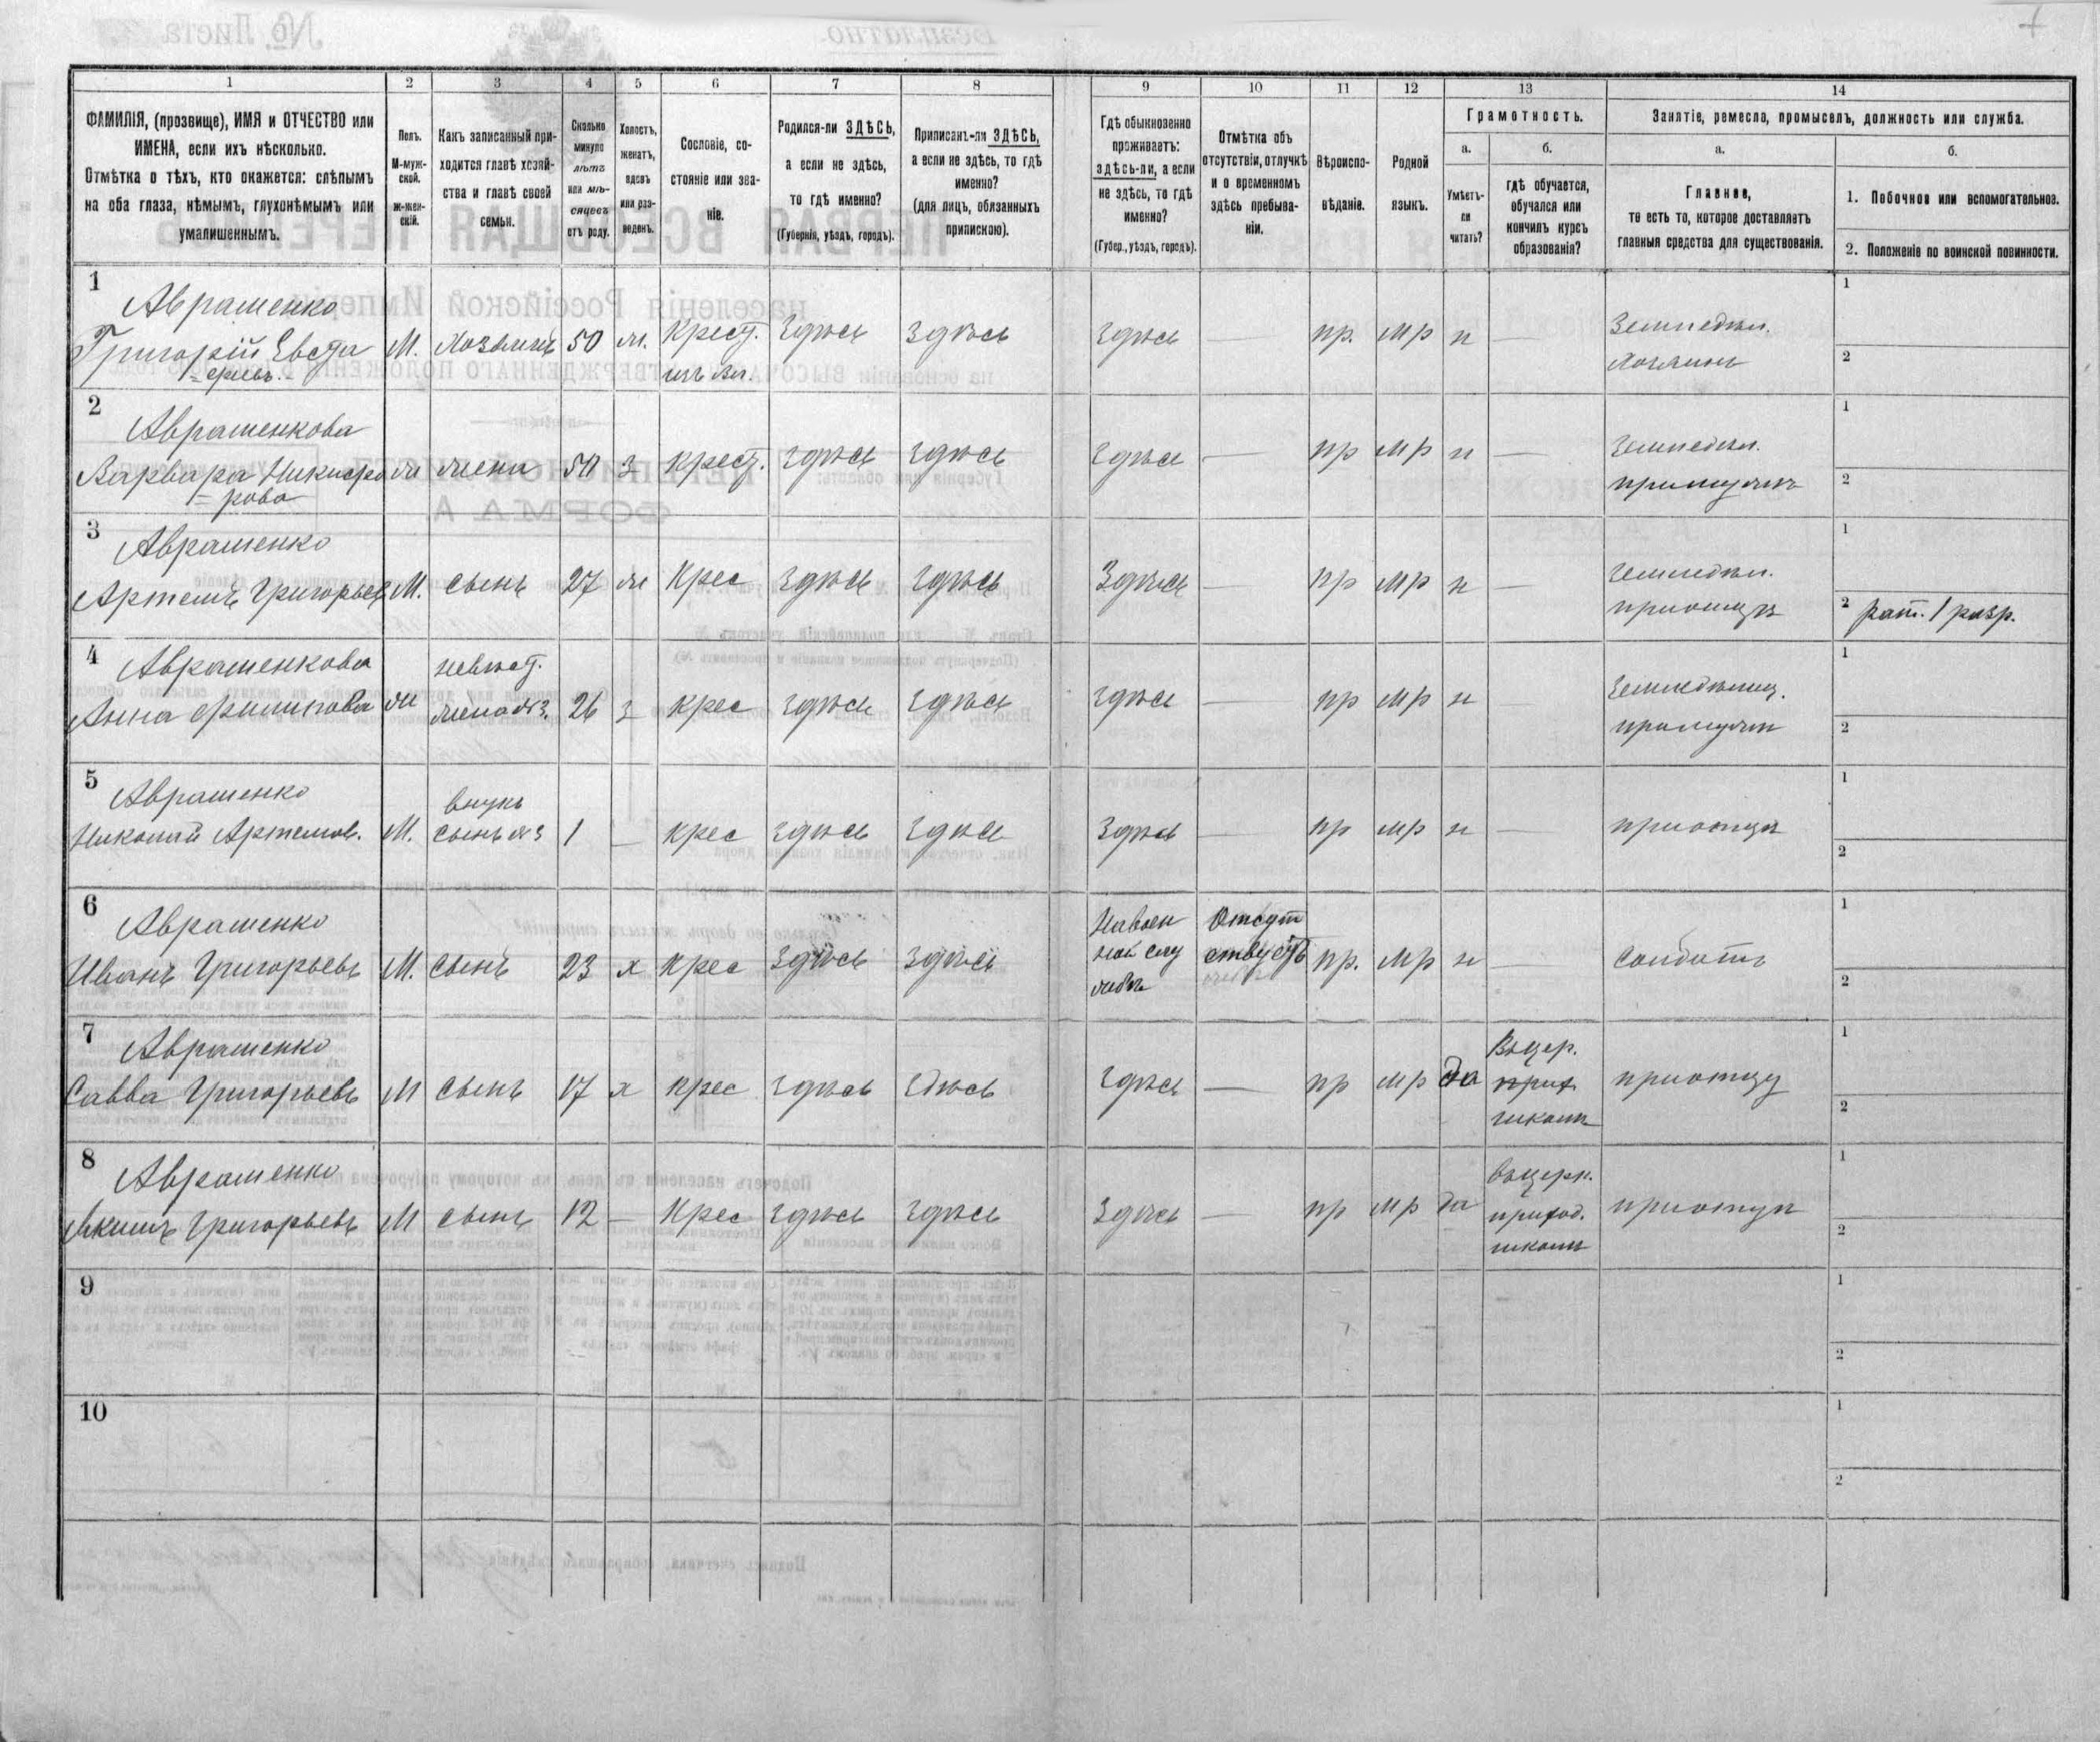 1 2 3 4 5 6 7 8 9 10 11 12 13 14
ФАМИЛІЯ, (прозвище), ИМЯ и ОТЧЕСТВО или
ИМЕНА, если ихъ нѣсколько.
Отмѣтка о тѣхъ, кто окажется: слѣпымъ
на оба глаза, нѣмымъ, глухонѣмымъ или
умалишеннымъ.
Полъ.
М-муж-
ской.
ж-жен-
скій.
Какъ записанный при-
ходится главѣ хозяй-
ства и главѣ своей
семьи.
Сколько
минуло
лѣтъ
или мѣ-
сяцевъ
отъ роду.
Холостъ,
женатъ,
вдовъ
или раз-
веденъ.
Сословіе, со-
стояніе или зва-
ніе.
Родился-ли ЗДѢСЬ,
а если не здѣсь,
то гдѣ именно?
(Губернія, уѣздъ, городъ).
Приписанъ-ли ЗДѢСЬ,
а если не здѣсь, то гдѣ
именно?
(для лицъ, обязанныхъ
припискою).
Гдѣ обыкновенно
проживаетъ:
здѣсь-ли, а если
не здѣсь, то гдѣ
именно?
(Губер., уѣздъ, городъ).
Отмѣтка объ
отсутствіи, отлучкѣ
и о временномъ
здѣсь пребыва-
ніи.
Вѣроиспо-
вѣданіе.
Родной
языкъ.
Грамотность.
а.
Умѣетъ-
ли
читать?
б.
гдѣ обучается,
обучался или
кончилъ курсъ
образованія?
Занятіе, ремесла, промыселъ, должность или служба.
а.
Главное,
то есть то, которое доставляетъ
главныя средства для существованія.
б.
1. Побочное или вспомогательное.
2. Положеніе по воинской повинности.
1
Аврашенко
Григорій Евста
=фіевъ. М. Хозяинъ 50 ж. Крест. здѣсь здѣсь здѣсь — пр. мр н — Земледѣл.
хозяинъ
1
2
2
Аврашенкова
Варвара Никифо
=рова ж жена 50 з крест. здѣсь здѣсь здѣсь — пр мр н — Земледѣл.
1
2
3
Аврашенко
Артемъ Григорьев М. сынъ 27 ж Крес здѣсь здѣсь Здѣсь — пр мр н — земледѣл.
приотцѣ
1
2 рат. 1 разр.
4
Аврашенкова
Анна Филипова ж невѣст.
жена №3. 26 з крес здѣсь здѣсь здѣсь — пр мр н
1
2
5
Аврашенко
Николай Артемов. М. внукъ
сынъ №3 1 — крес здѣсь здѣсь Здѣсь — пр мр н — приотцѣ
1
2
6
Аврашенко
Иванъ Григорьевъ М. сынъ 23 х Крес Здѣсь здѣсь Навоен
ной слу
жбѣ Отсут
ствуетъ пр. мр н — солдатъ
1
2
7
Аврашенко
Савва Григорьевъ М сынъ 17 х крес здѣсь здѣсь здѣсь — пр мр да Вцер.
прих
школѣ приотцу
1
2
8
Аврашенко
Акимъ Григорьевъ М сынъ 12 — Крес здѣсь здѣсь Здѣсь — пр мр да вцерк.
приход.
школѣ приотцѣ
1
2
9
1
2
10
1
2